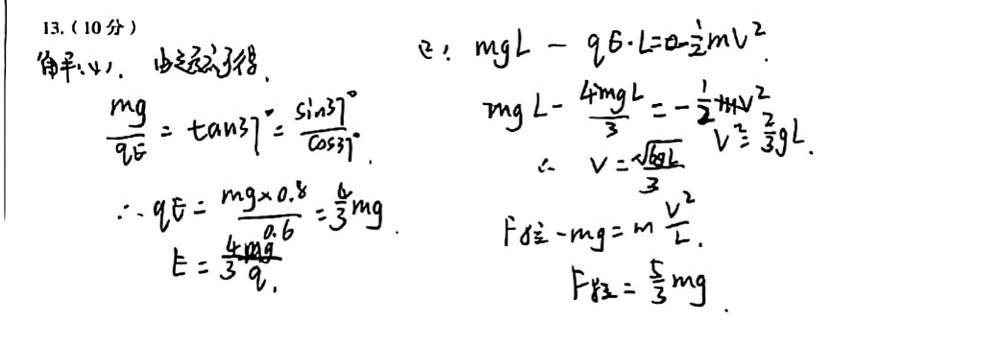 13.(10分)
解:(1). 由题意可得.
mg/qE = tan37° = sin37°/cos37°.
∴ qE = mg×0.8/0.6 = 4/3 mg.
E = 4mg/3q.
(2): mgL - qE·L = 0 - 1/2 mV².
mgL - 4mgL/3 = - 1/2 mV²
V² = 2/3 gL.
∴ V = √6gL/3
F拉 - mg = m V²/L.
F拉 = 5/3 mg.